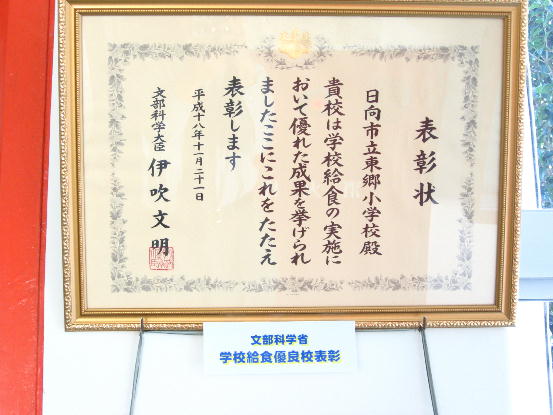 表彰状
日向市立東郷小学校殿
貴校は学校給食の実施に
おいて優れた成果を挙げられ
ましたここにこれをたたえ
表彰します
平成十八年十一月二十一日
文部科学大臣 伊吹文明
文部科学省
学校給食優良校表彰